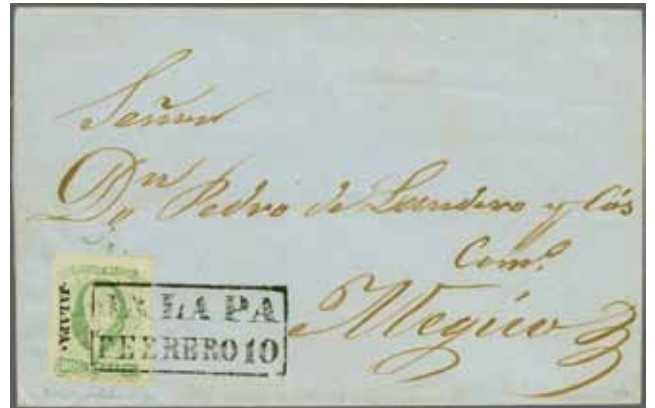 Señor
Dn Pedro de Landero y Cós
Comº
Megico
JALAPA
JALAPA
FEBRERO 10